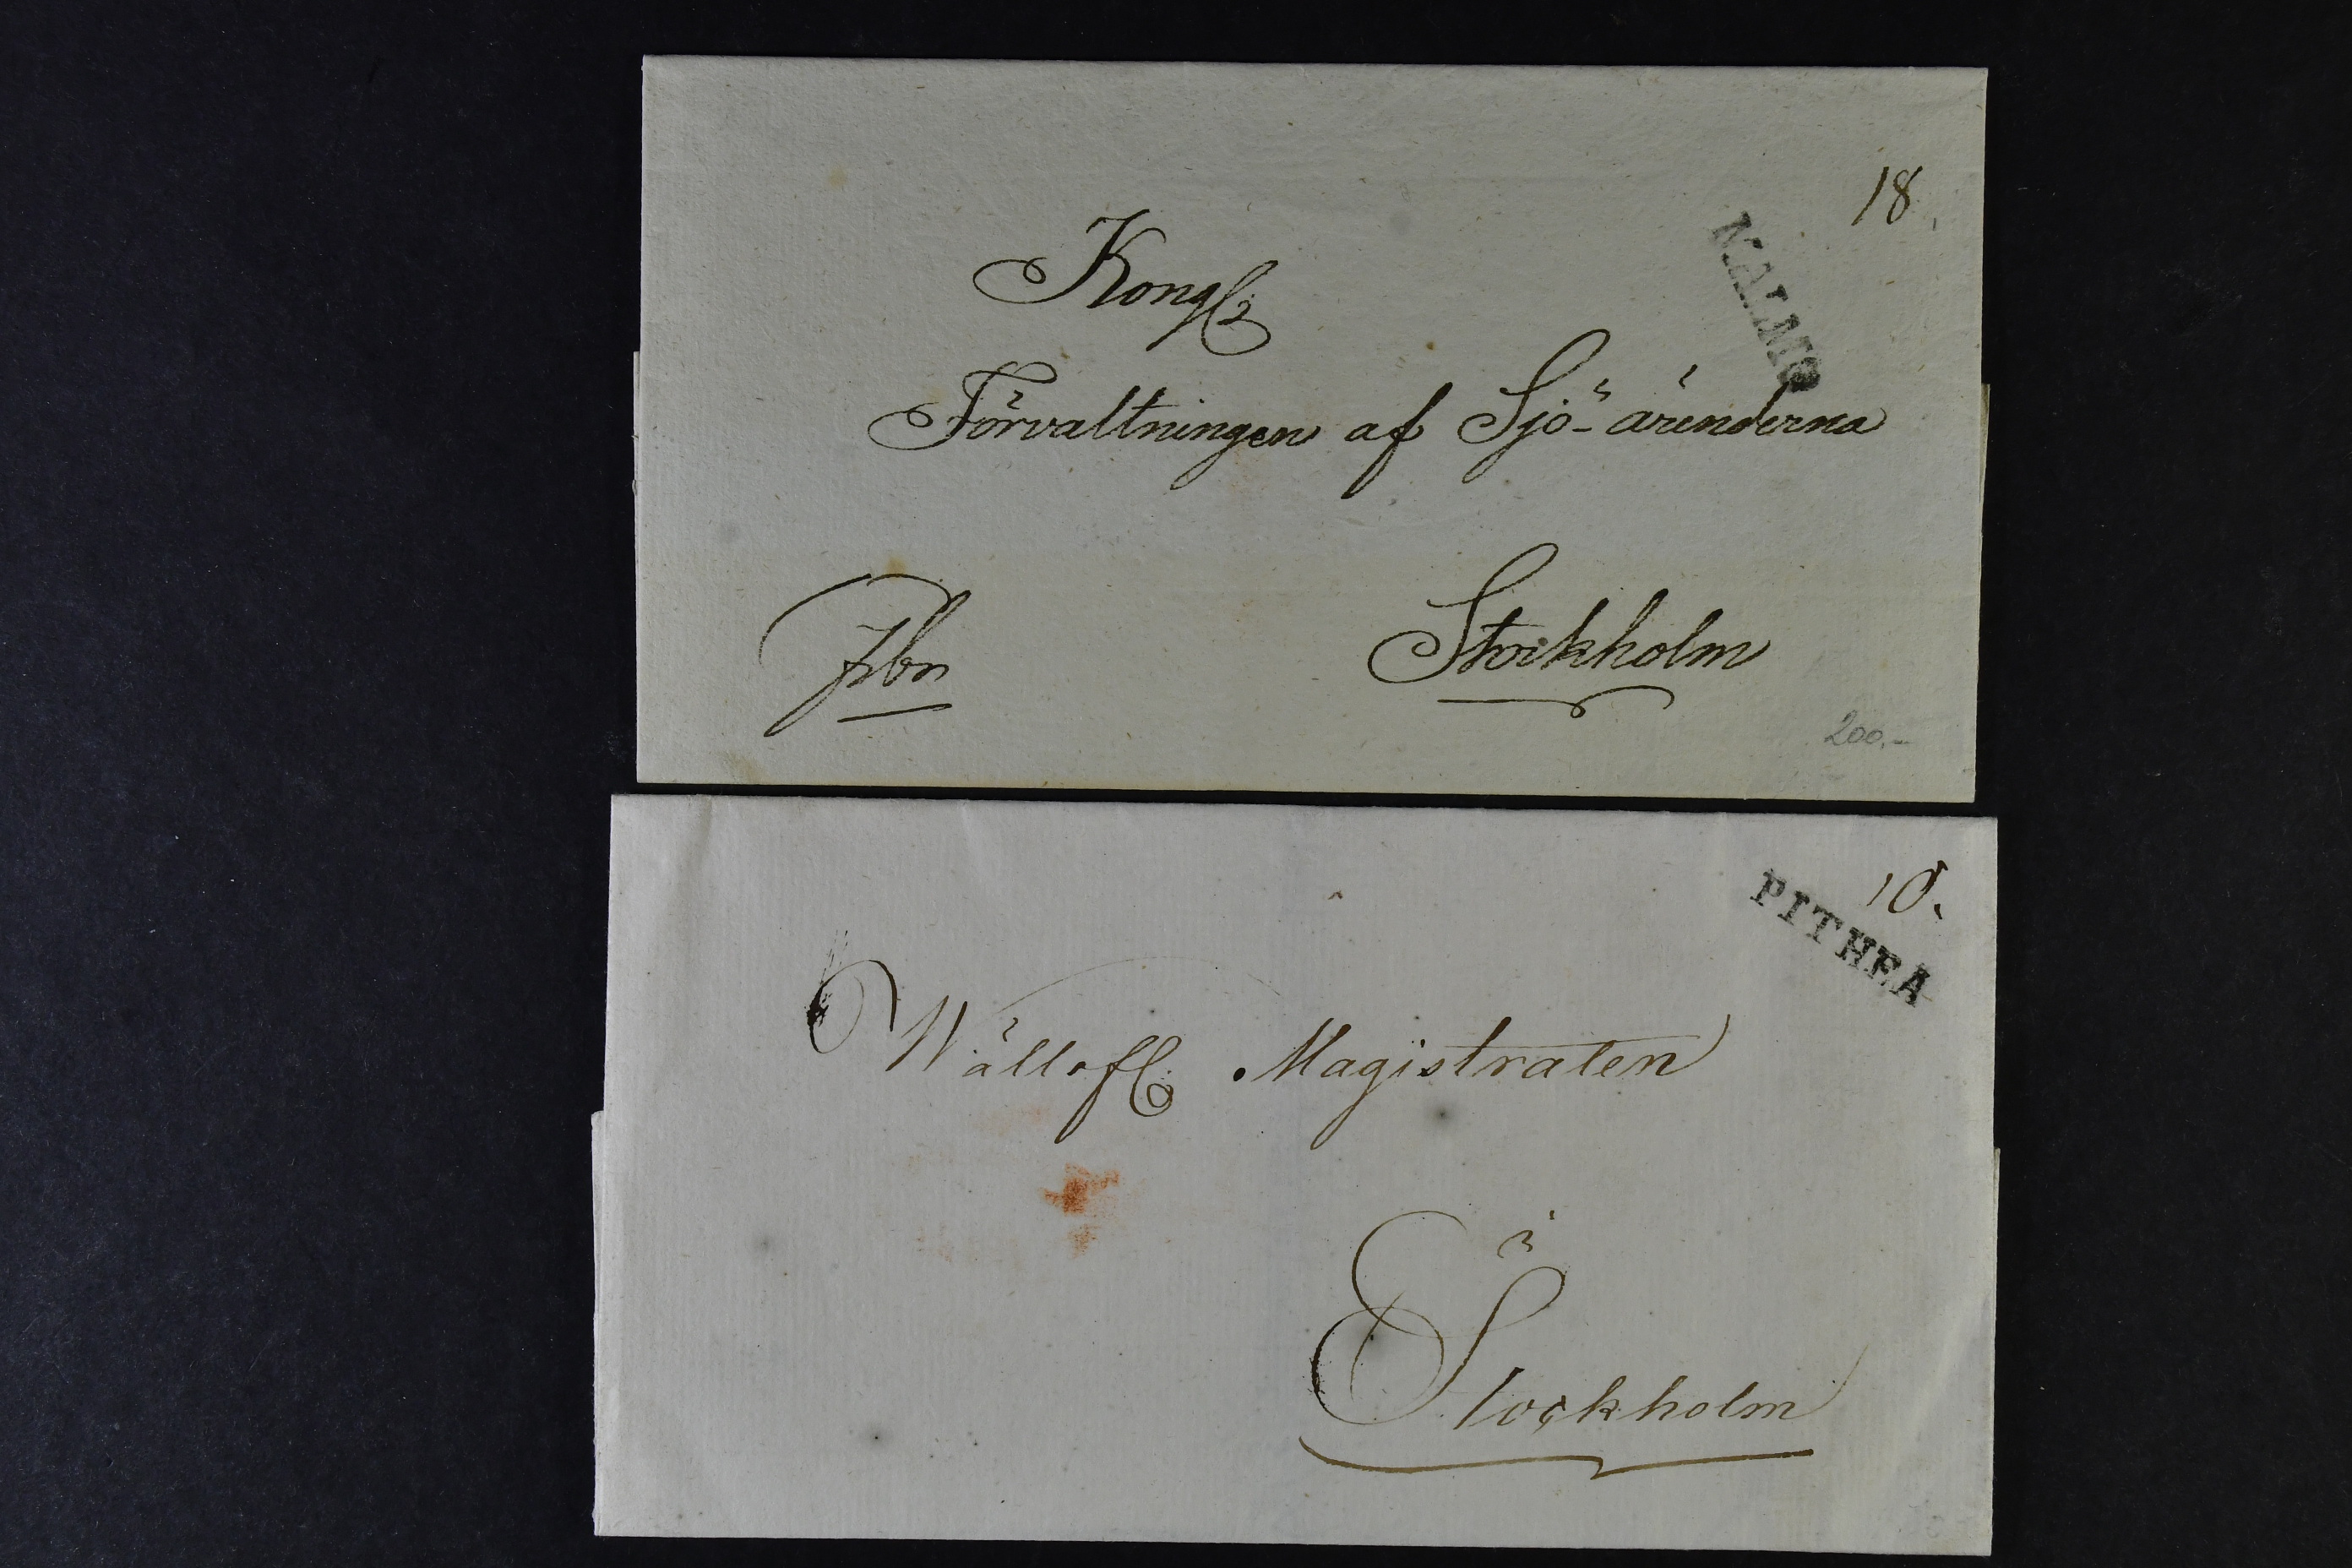 18.
MALMÖ
Kongl:
Förvaltningen af Sjö-ärenderna
Stockholm
200,-
10.
PITHEA
Wällofl: Magistraten
i
Stockholm